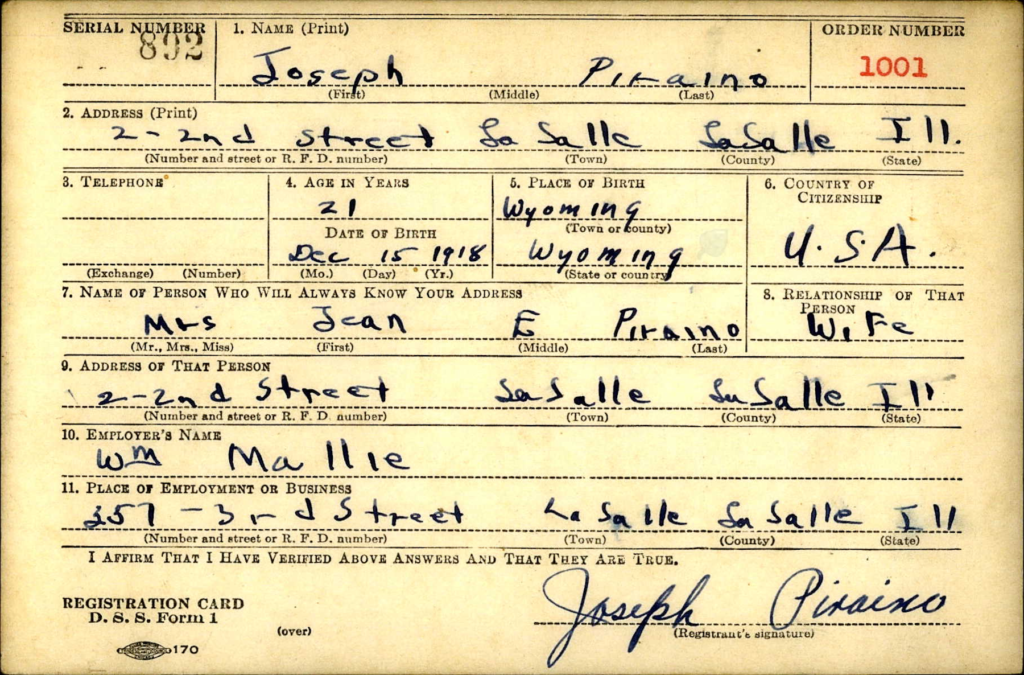 SERIAL NUMBER 1. NAME (Print) ORDER NUMBER
892 Joseph Piraino 1001
(First) (Middle) (Last)
2. ADDRESS (Print)
2-2nd Street La Salle LaSalle Ill.
(Number and street or R. F. D. number) (Town) (County) (State)
3. TELEPHONE 4. AGE IN YEARS 5. PLACE OF BIRTH 6. COUNTRY OF CITIZENSHIP
21 Wyoming
(Town or county)
DATE OF BIRTH U.S.A.
Dec 15 1918 Wyoming
(Exchange) (Number) (Mo.) (Day) (Yr.) (State or country)
7. NAME OF PERSON WHO WILL ALWAYS KNOW YOUR ADDRESS 8. RELATIONSHIP OF THAT PERSON
Mrs Jean E Piraino Wife
(Mr., Mrs., Miss) (First) (Middle) (Last)
9. ADDRESS OF THAT PERSON
2-2nd Street LaSalle LaSalle Ill
(Number and street or R. F. D. number) (Town) (County) (State)
10. EMPLOYER'S NAME
Wm Mallie
11. PLACE OF EMPLOYMENT OR BUSINESS
357-3rd Street LaSalle LaSalle Ill
(Number and street or R. F. D. number) (Town) (County) (State)
I AFFIRM THAT I HAVE VERIFIED ABOVE ANSWERS AND THAT THEY ARE TRUE.
REGISTRATION CARD
D. S. S. Form 1 Joseph Piraino
(over) (Registrant's signature)
170